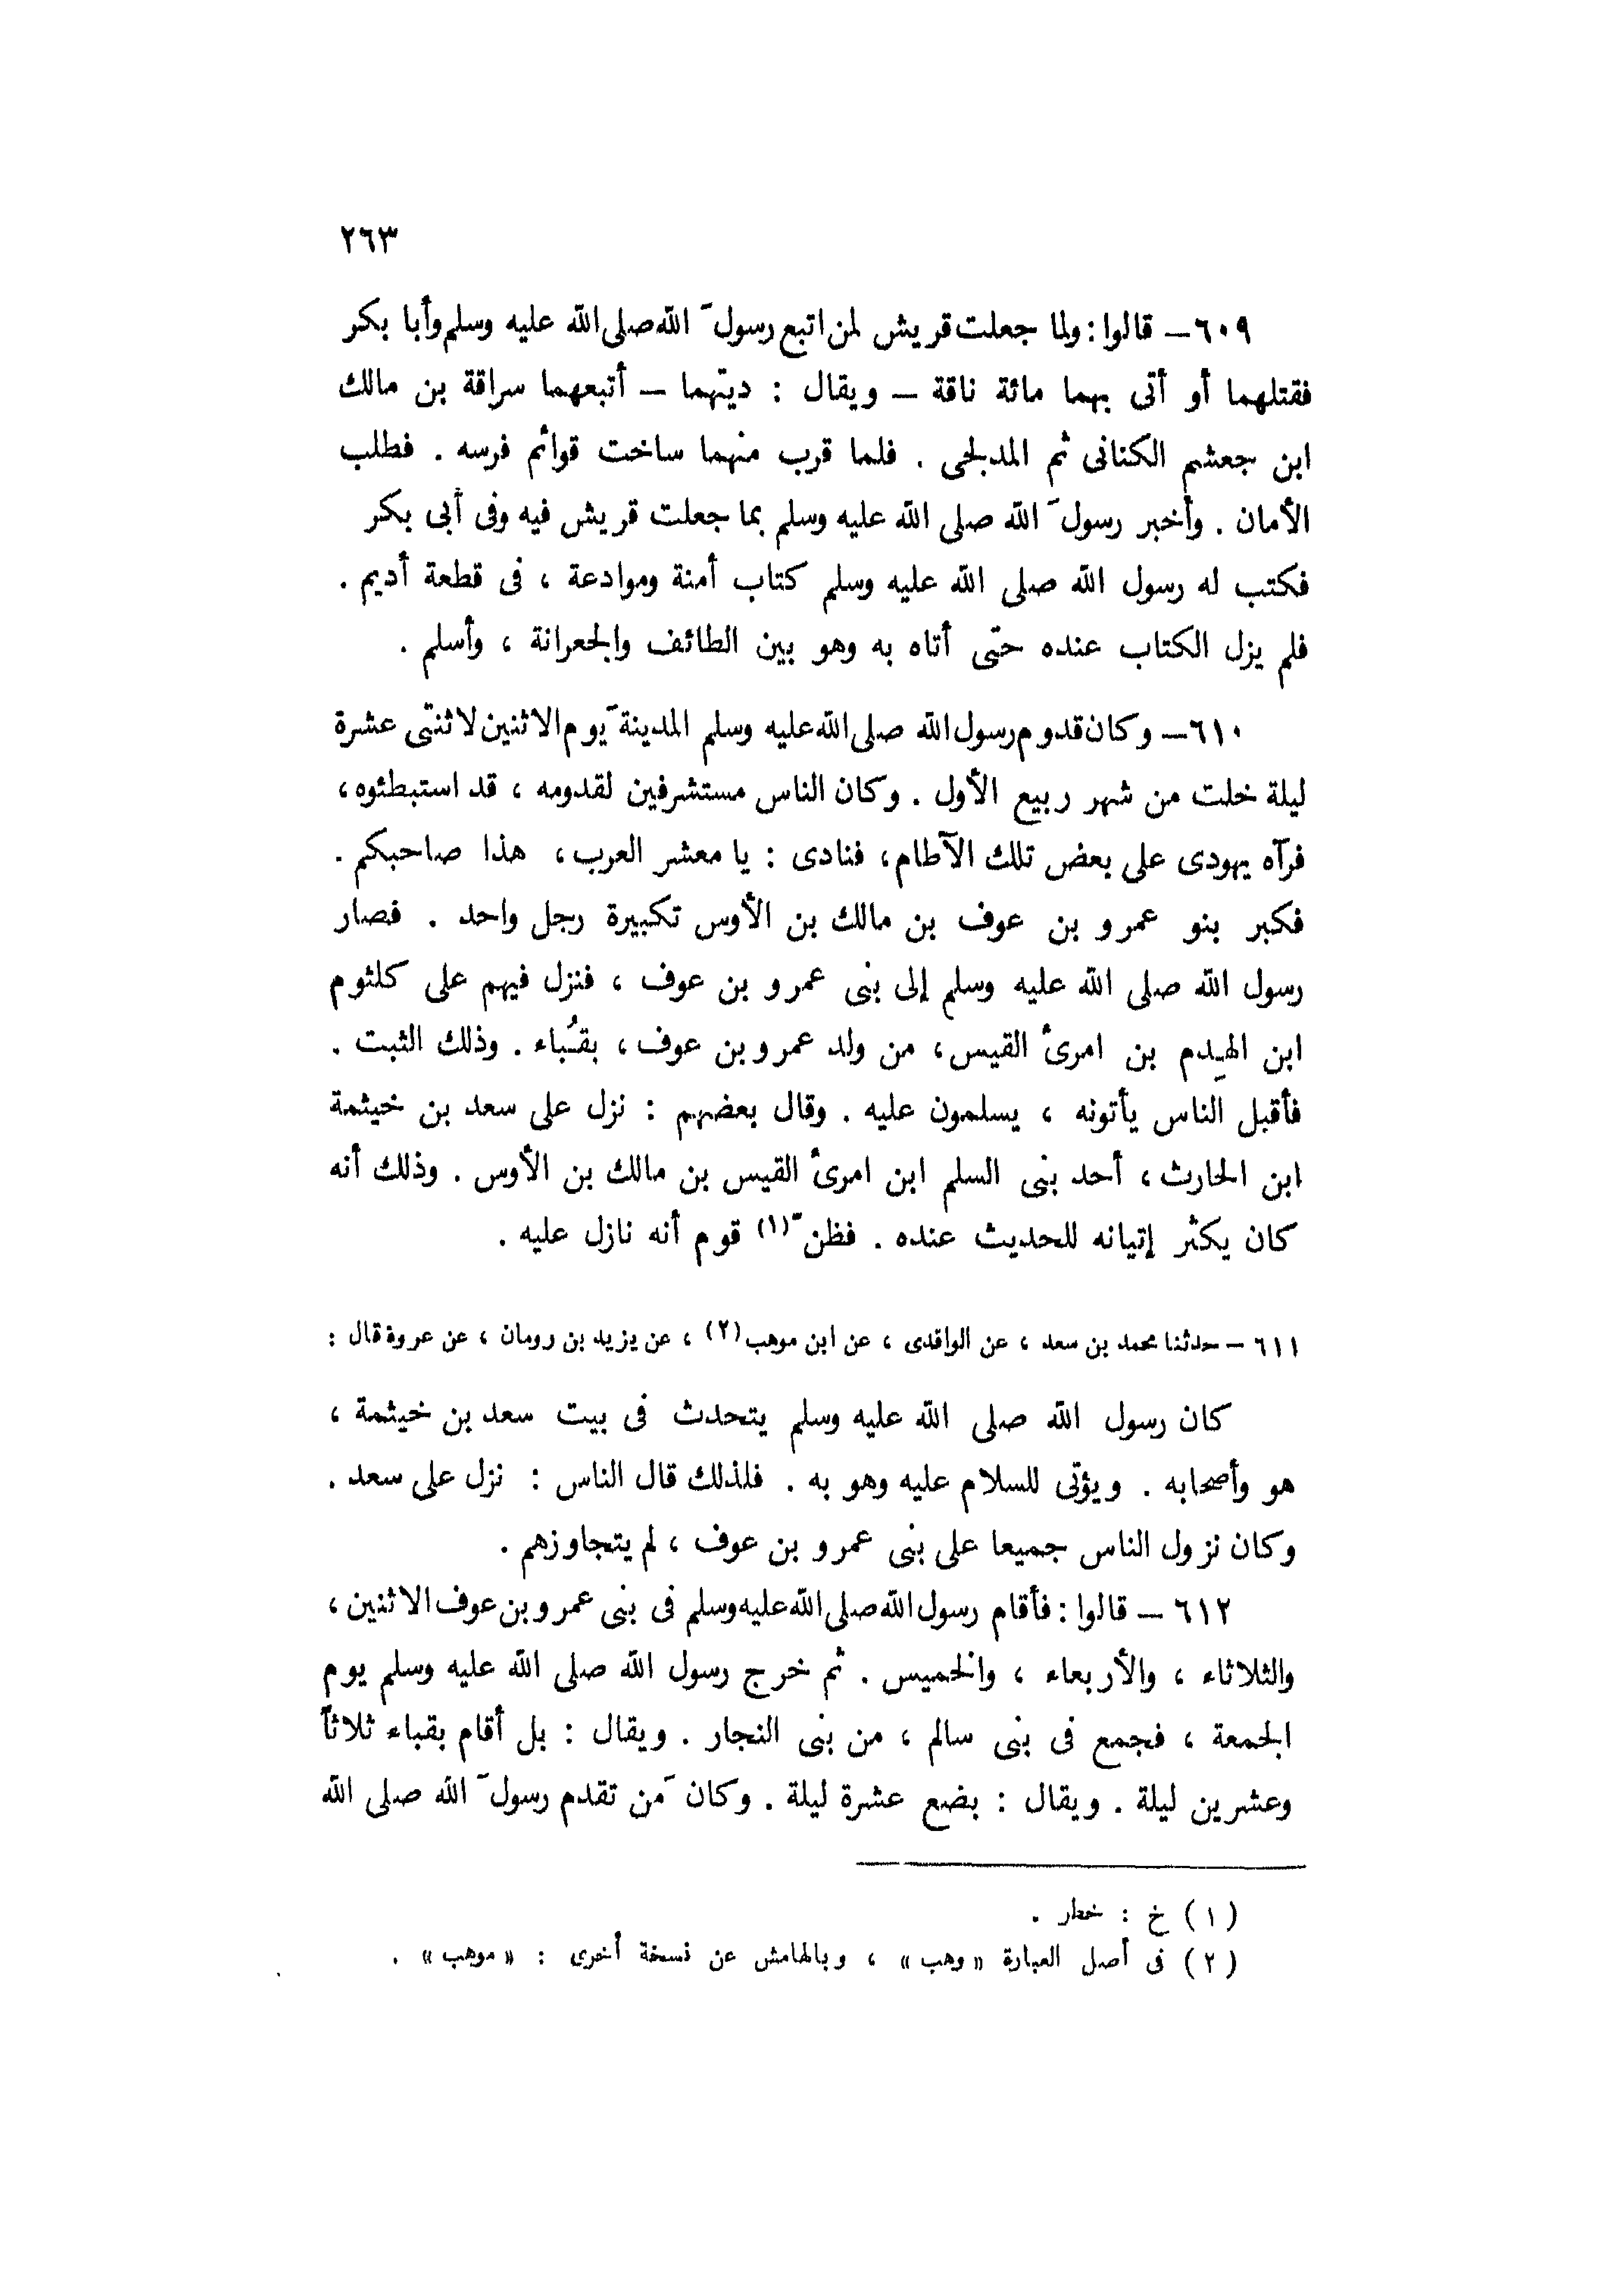 ٢٦٣
٦٠٩ — قالوا : ولما جعلت قريش لمن اتبع رسولَ الله صلى الله عليه وسلم وأبا بكر
فقتلهما أو أتى بهما مائة ناقة — ويقال : ديتهما — أتبعهما سراقة بن مالك
ابن جعشم الكنانى ثم المدلجى . فلما قرب منهما ساخت قوائم فرسه . فطلب
الأمان . وأخبر رسولَ الله صلى الله عليه وسلم بما جعلت قريش فيه وفى أبى بكر
فكتب له رسول الله صلى الله عليه وسلم كتاب أمنة وموادعة ، فى قطعة أديم .
فلم يزل الكتاب عنده حتى أتاه به وهو بين الطائف والجعرانة ، وأسلم .
٦١٠ — وكان قدوم رسول الله صلى الله عليه وسلم المدينةَ يوم الاثنين لاثنتى عشرة
ليلة خلت من شهر ربيع الأول . وكان الناس مستشرفين لقدومه ، قد استبطئوه ،
فرآه يهودى على بعض تلك الآطام ، فنادى : يا معشر العرب ، هذا صاحبكم .
فكبر بنو عمرو بن عوف بن مالك بن الأوس تكبيرة رجل واحد . فصار
رسول الله صلى الله عليه وسلم إلى بنى عمرو بن عوف ، فنزل فيهم على كلثوم
ابن الهِدم بن امرئ القيس ، من ولد عمرو بن عوف ، بقُباء . وذلك الثبت .
فأقبل الناس يأتونه ، يسلمون عليه . وقال بعضهم : نزل على سعد بن خيثمة
ابن الحارث ، أحد بنى السلم ابن امرئ القيس بن مالك بن الأوس . وذلك أنه
كان يكثر إتيانه للحديث عنده . فظنّ (١) قوم أنه نازل عليه .
٦١١ — حدثنا محمد بن سعد ، عن الواقدى ، عن ابن موهب (٢) ، عن يزيد بن رومان ، عن عروة قال :
كان رسول الله صلى الله عليه وسلم يتحدث فى بيت سعد بن خيثمة ،
هو وأصحابه . ويؤتى للسلام عليه وهو به . فلذلك قال الناس : نزل على سعد .
وكان نزول الناس جميعا على بنى عمرو بن عوف ، لم يتجاوزهم .
٦١٢ — قالوا : فأقام رسول الله صلى الله عليه وسلم فى بنى عمرو بن عوف الاثنين ،
والثلاثاء ، والأربعاء ، والخميس . ثم خرج رسول الله صلى الله عليه وسلم يوم
الجمعة ، فجمع فى بنى سالم ، من بنى النجار . ويقال : بل أقام بقباء ثلاثاً
وعشرين ليلة . ويقال : بضع عشرة ليلة . وكان مَن تقدم رسولَ الله صلى الله
(١) خ : خطار .
(٢) فى أصل العبارة « وهب » ، وبالهامش عن نسخة أخرى : « موهب » .